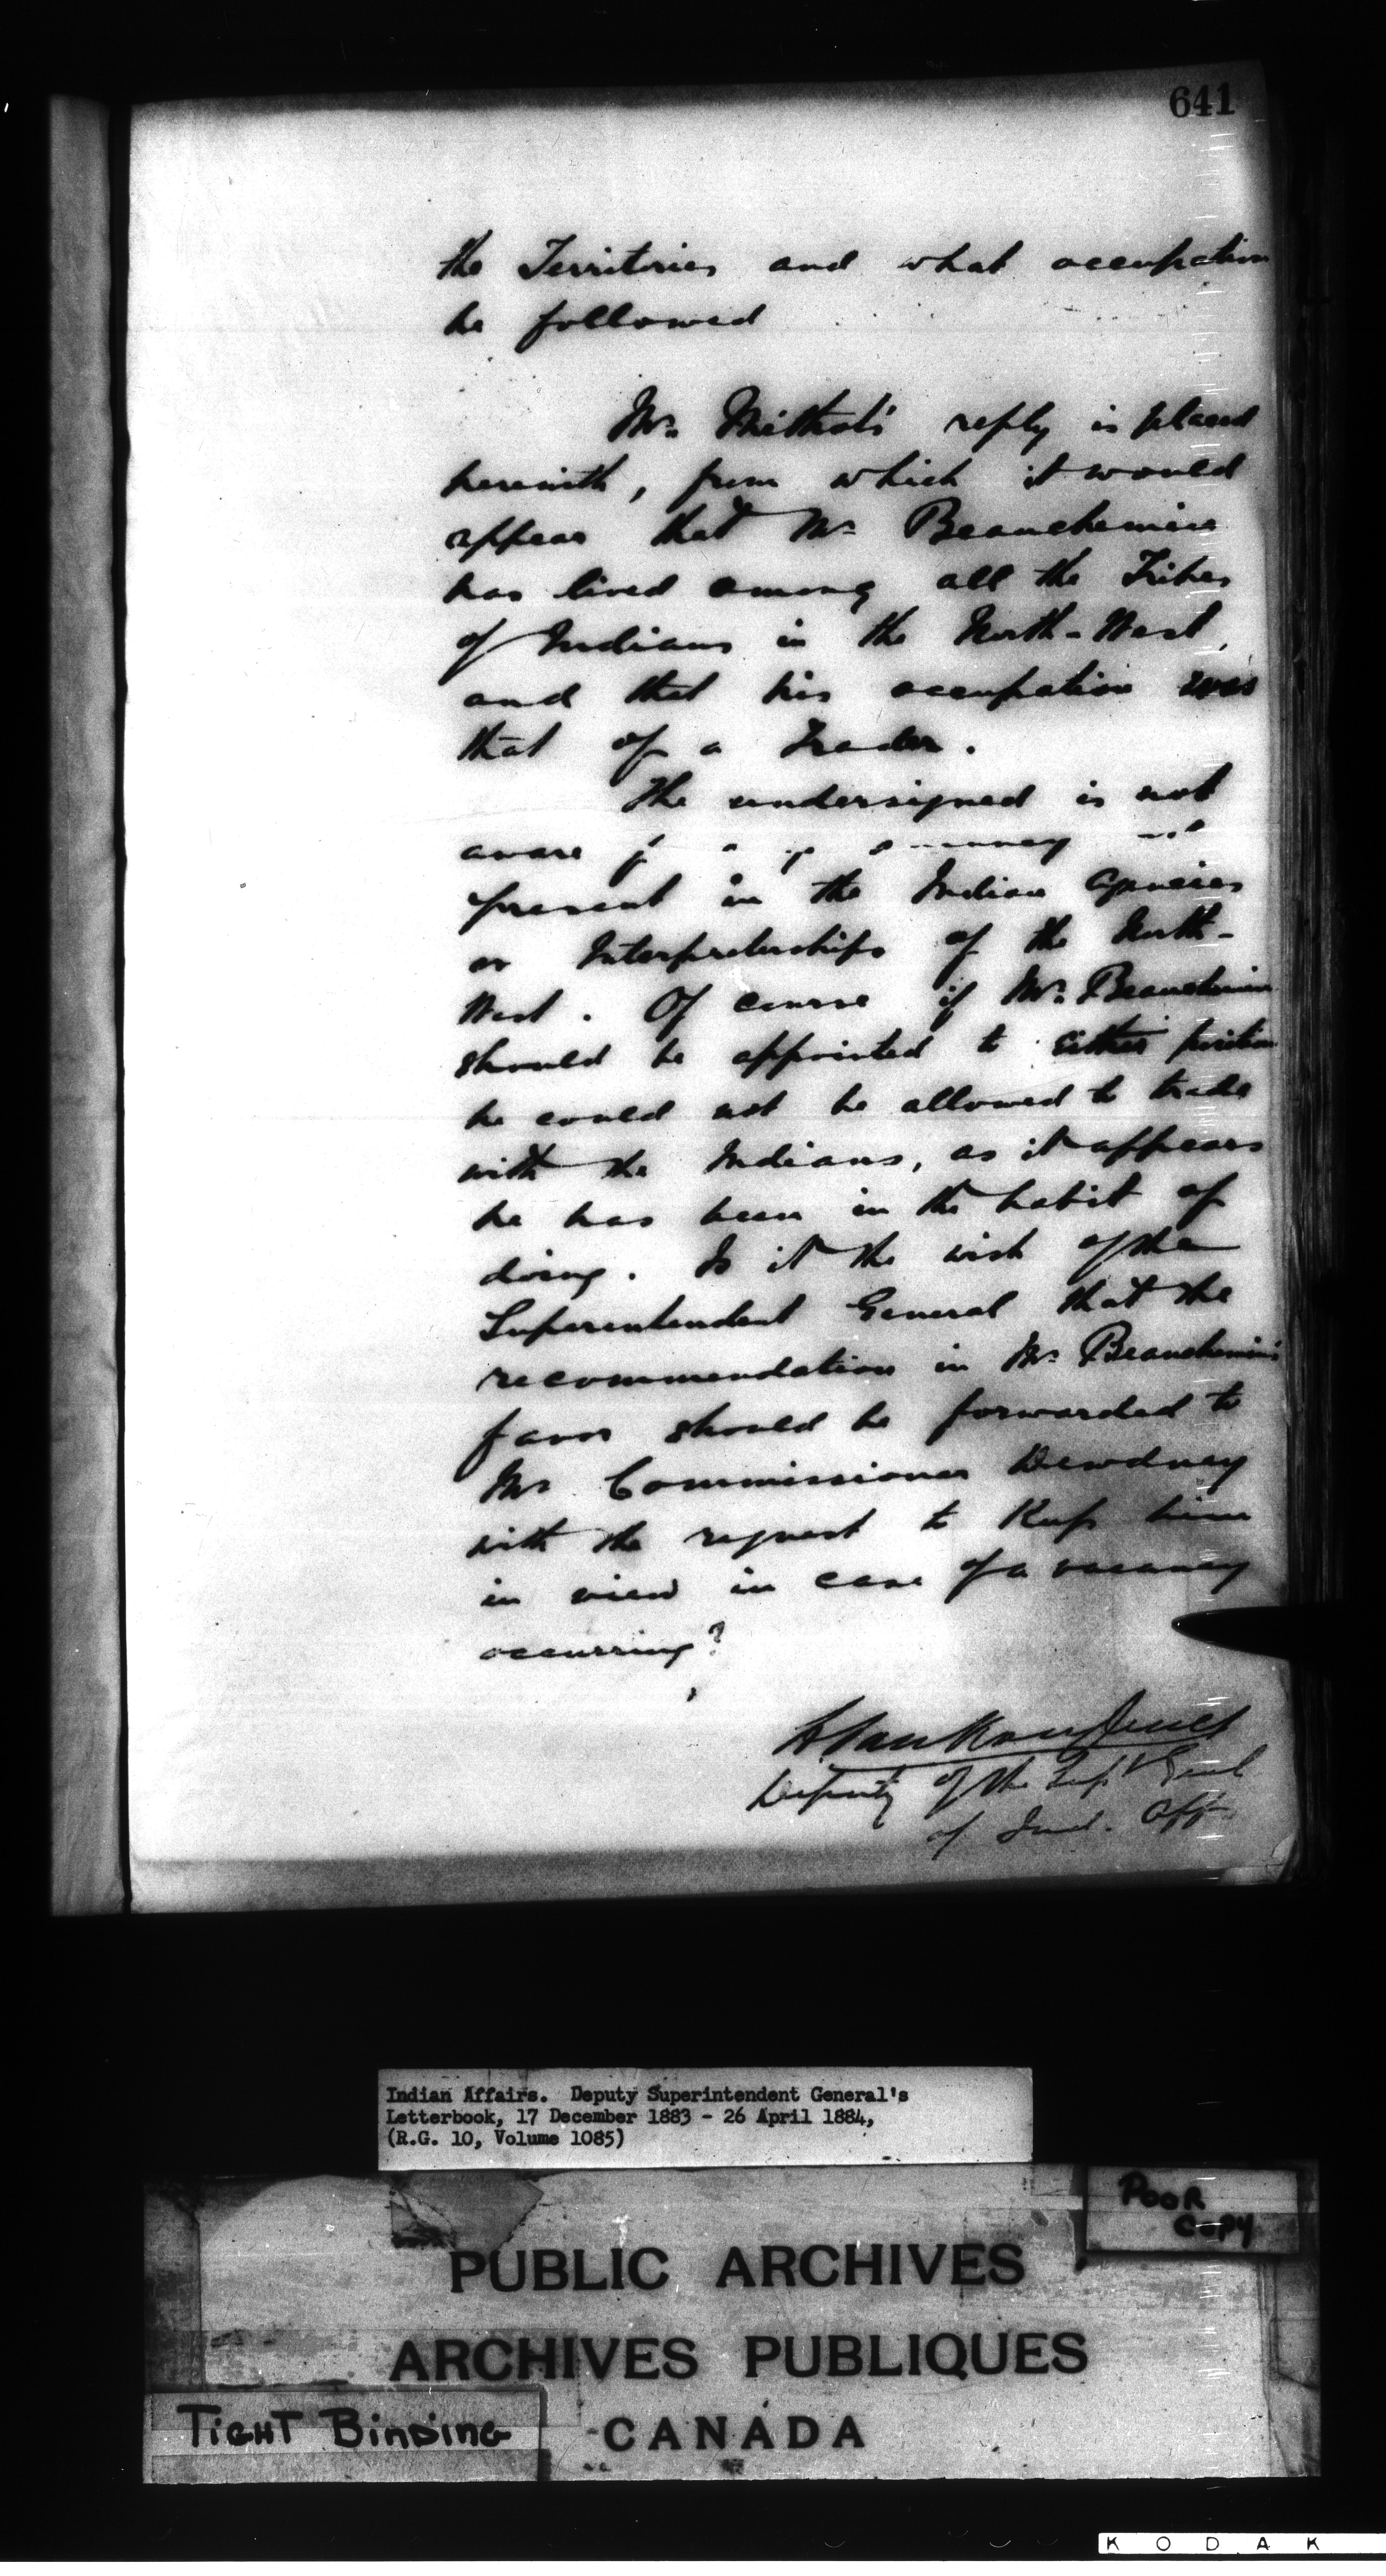 641
the Territories and what occupation
he followed
Mr. Méthot's reply is placed
herewith, from which it would
appear that Mr Beauchemin
has lived among all the Tribes
of Indians in the North-West,
and that his occupation was
that of a Trader.
The undersigned is not
aware
present in the Indian Agencies
or Interpreterships of the North-
West. Of course if Mr. Beauchemin
should be appointed to either position
he could not be allowed to trade
with the Indians, as it appears
he has been in the habit of
doing. Is it the wish of the
Superintendent General that the
recommendation in Mr. Beauchemin's
favor should be forwarded to
Mr Commissioner Dewdney
with the request to Keep him
in view in case of a vacancy
occurring?
L VanKoughnet
Deputy of the Supt Genl
of Ind. Aff.
Indian Affairs. Deputy Superintendent General's
Letterbook, 17 December 1883 - 26 April 1884,
(R.G. 10, Volume 1085)
POOR
COPY
PUBLIC ARCHIVES
ARCHIVES PUBLIQUES
TIGHT BINDING
CANADA
KODAK